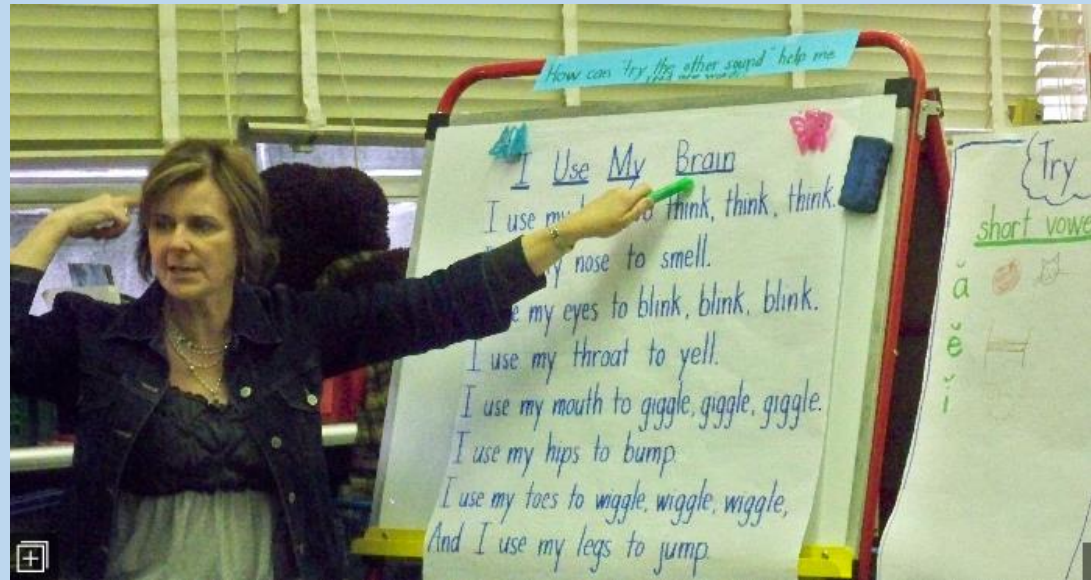 How can "try the other sound" help me
I Use My Brain
I use my to think, think, think.
nose to smell.
my eyes to blink, blink, blink.
I use my throat to yell.
I use my mouth to giggle, giggle, giggle.
I use my hips to bump
I use my toes to wiggle, wiggle, wiggle,
And I use my legs to jump.
Try
short vowe
ă
ĕ
ĭ